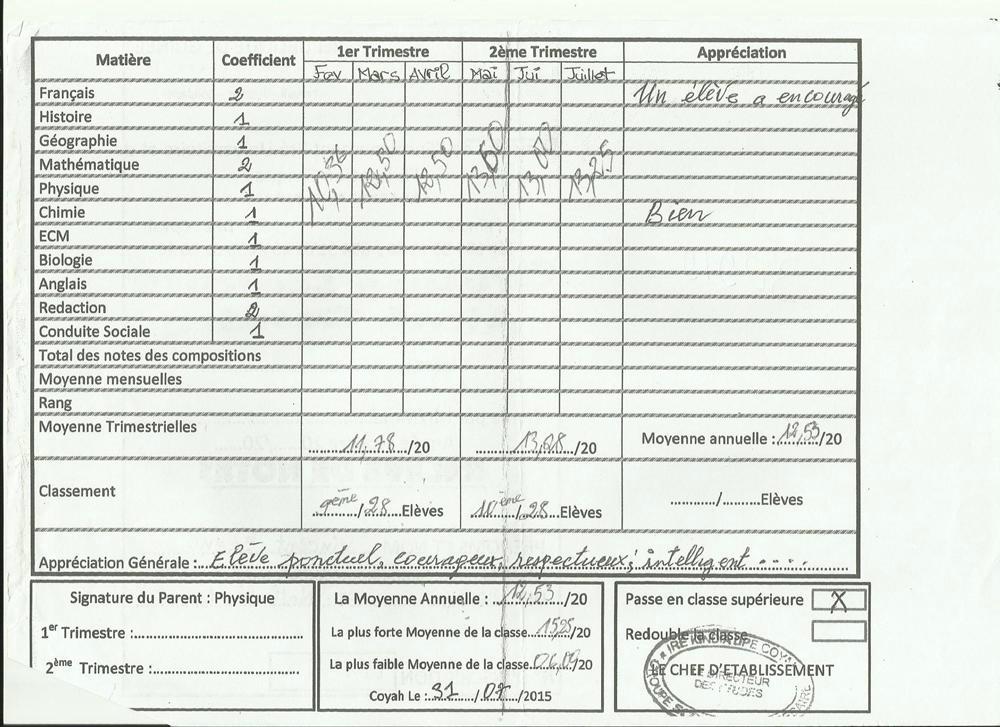 Matière Coefficient 1er Trimestre 2ème Trimestre Appréciation
Fev Mars Avril Mai Jui Juillet
Français 2 Un élève a encouragé
Histoire 1
Géographie 1
Mathématique 2
Physique 1
10,36 12,50 12,50 13,60 13,00 13,25
Chimie 1 Bien
ECM 1
Biologie 1
Anglais 1
Redaction 2
Conduite Sociale 1
Total des notes des compositions
Moyenne mensuelles
Rang
Moyenne Trimestrielles 11,78 /20 13,28 /20 Moyenne annuelle : 12,53 /20
Classement 9ème/28 Elèves 10ème/28 Elèves ........../......... Elèves
Appréciation Générale : Elève ponctuel, courageux, respectueux; intelligent ....
Signature du Parent : Physique
1er Trimestre :
2ème Trimestre :
La Moyenne Annuelle : 12,53 /20
La plus forte Moyenne de la classe 15,25 /20
La plus faible Moyenne de la classe /20
Coyah Le : 31 / 07 /2015
Passe en classe supérieure X
Redouble la classe
LE CHEF D'ETABLISSEMENT
DIRECTEUR
DES ETUDES